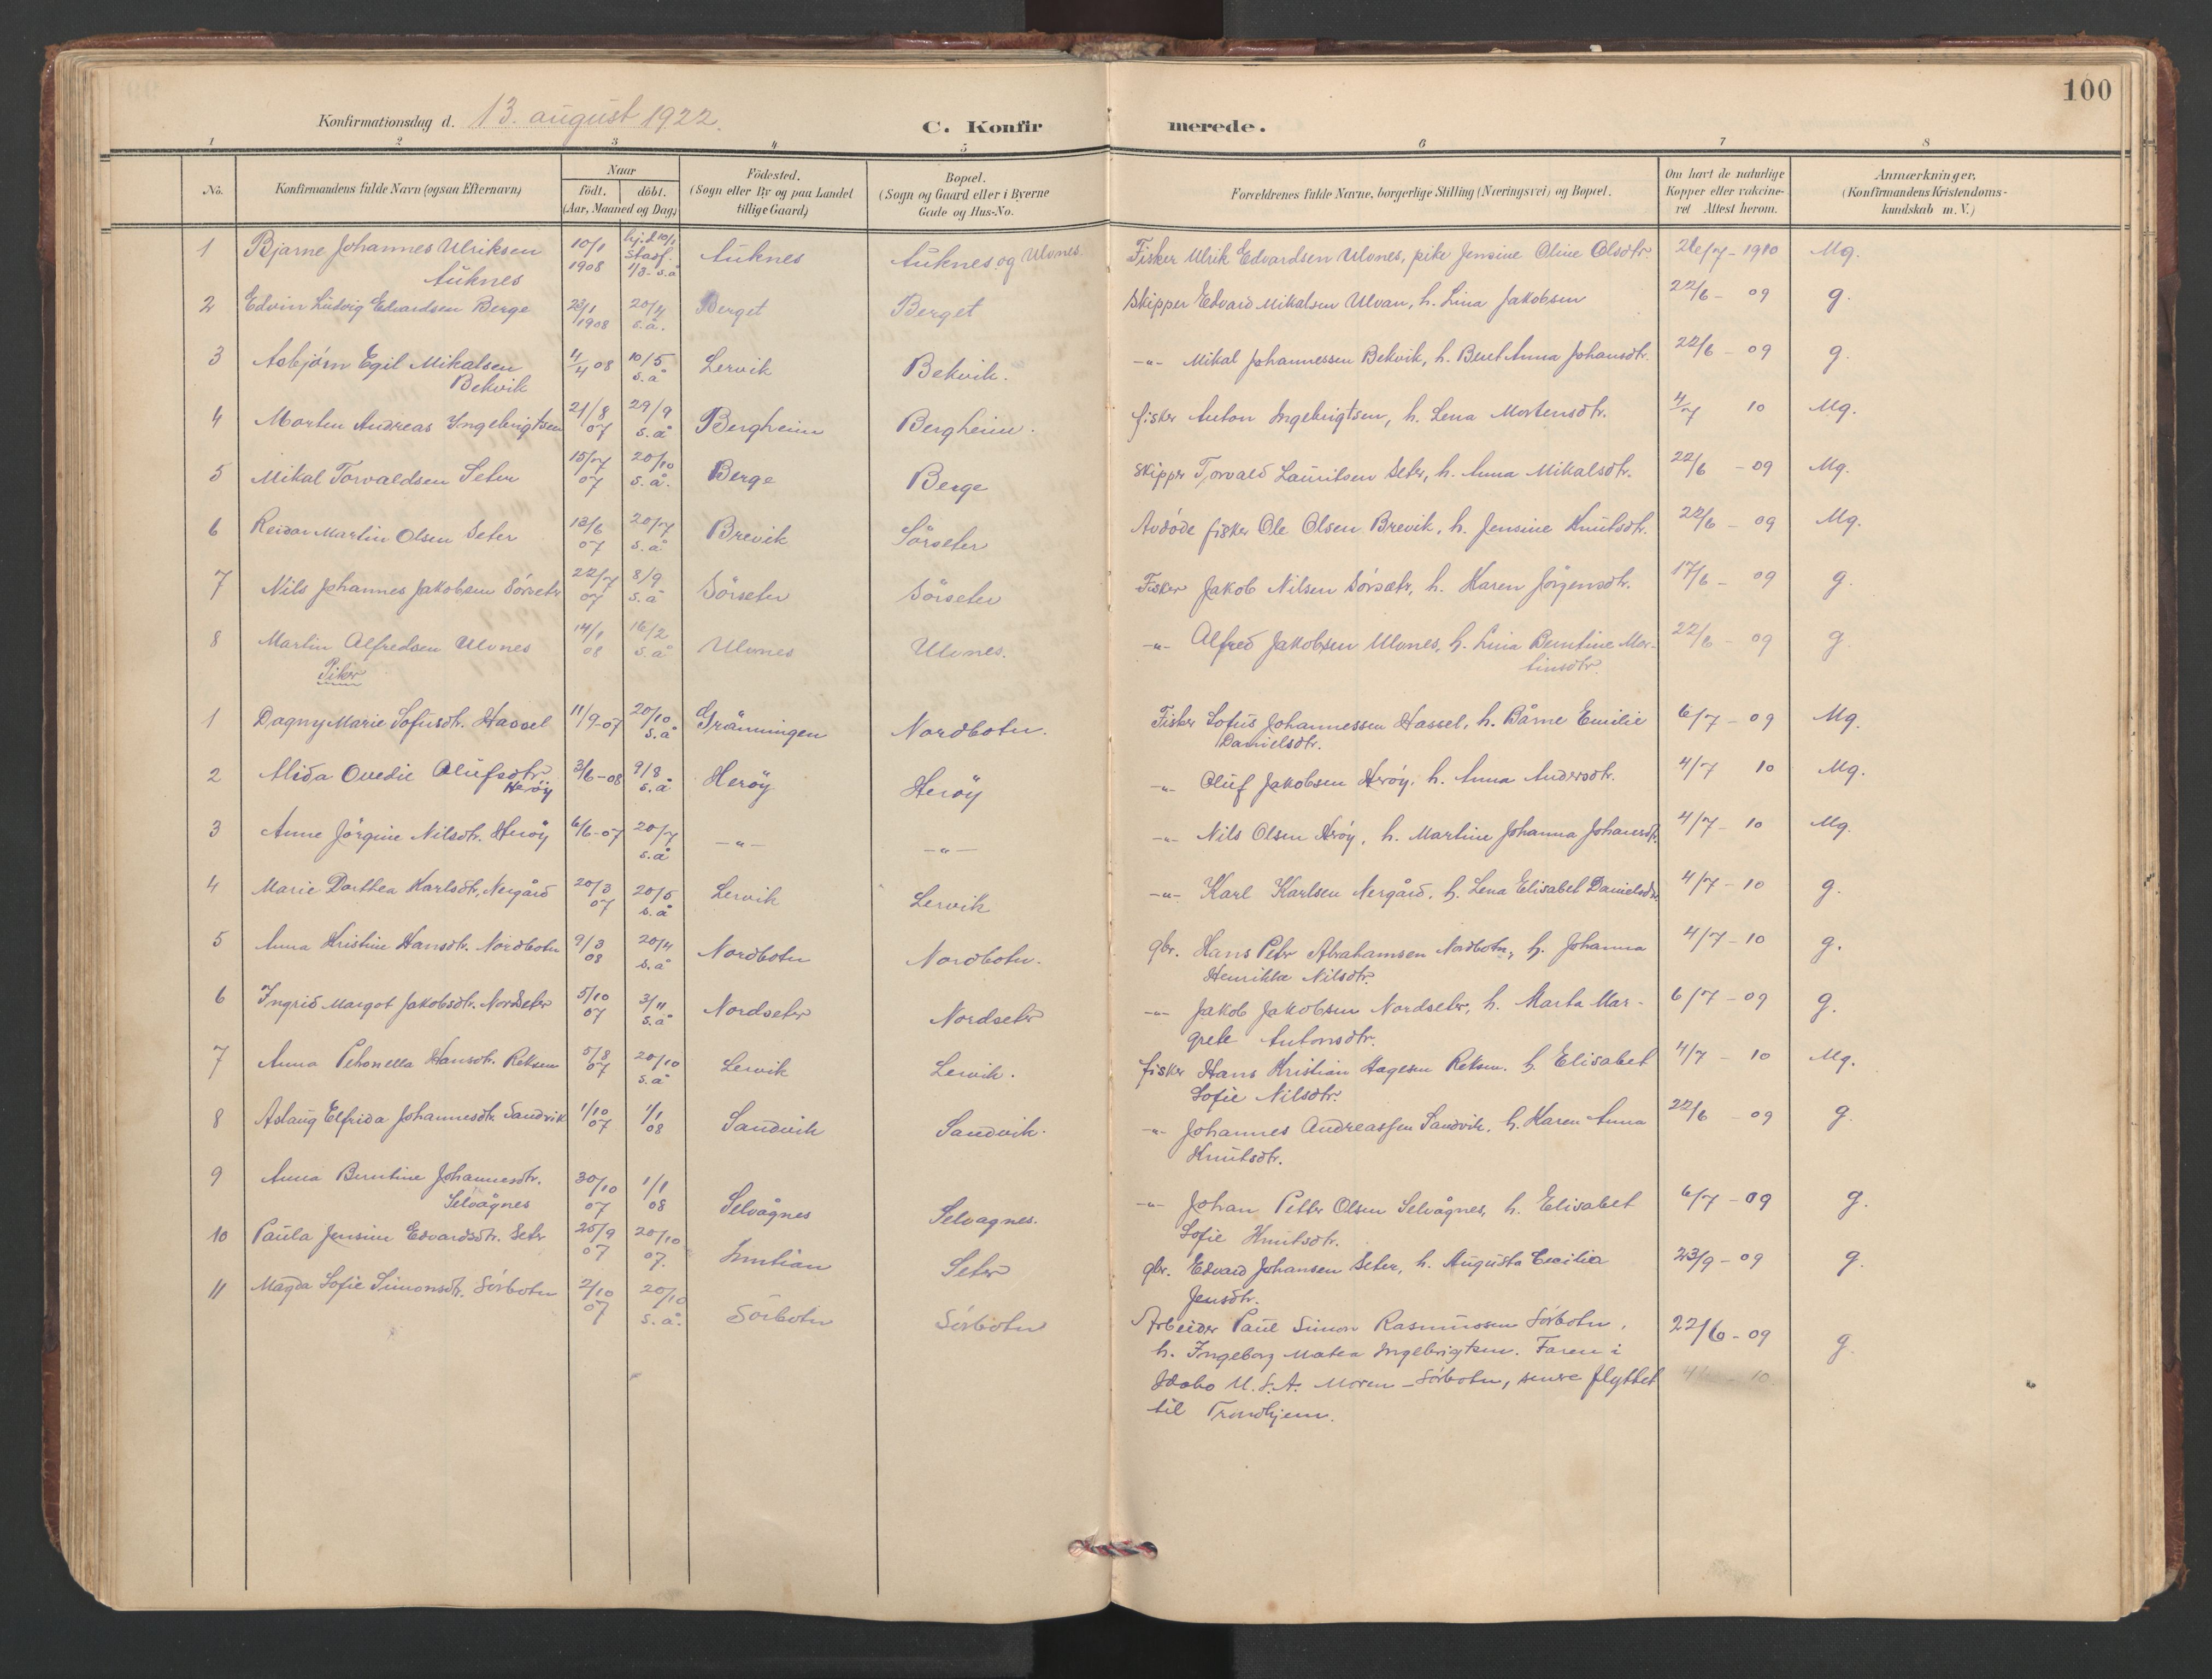 100
Konfirmationsdag d. 13. august 1922.
C. Konfirmerede.
1 2 3 4 5 6 7 8
No. Konfirmandens fulde Navn (ogsaa Efternavn) Naar födt. döbt. (Aar, Maaned og Dag) Födested. (Sogn eller By og paa Landet tillige Gaard) Bopæl. (Sogn og Gaard eller i Byerne Gade og Hus-No. Forældrenes fulde Navne, borgerlige Stilling (Næringsvei) og Bopæl. Om havt de naturlige Kopper eller vakcineret Attest herom. Anmærkninger. (Konfirmandens Kristendomskundskab m. V.)
1 Bjarne Johannes Ulriksen 10/1 1908 hj.d 10/1 stadf. 1/3 s.å Auknes Auknes og Ulvnes. Fisker Ulrik Edvardsen Ulvnes, pike Jensine Oline Olsdtr. 26/7-1910 Mg.
Auknes
2 Edvin Ludvig Edvardsen Berge 23/1 1908 20/4 s.å. Berget Berget Skipper Edvard Mikalsen Ulvan, h. Lina Jakobsen 22/6 - 09 g.
3 Asbjörn Egil Mikalsen 11/4 08 10/5 s.å Lervik Bekvik. -"- Mikal Johannessen Bekvik, h. Beret Anna Johansdtr. 22/6 - 09 g.
Bekvik
4 Morten Andreas Ingebrigtsen 21/8 07 29/9 s.å Bergheim Bergheim. fisker Anton Ingebrigtsen, h. Lena Mortensdtr. 4/7 10 Mg.
5 Mikal Torvaldsen Seter 15/7 07 20/10 s.å. Berge Berge Skipper Torvald Lauritsen Seter, h. Anna Mikalsdtr. 22/6 - 09 Mg.
6 Reidar Martin Olsen Seter 13/6 07 20/7 s.å Brevik Sörseter Avdöde fisker Ole Olsen Brevik, h. Jensine Knutsdtr. 22/6 - 09 Mg.
7 Nils Johannes Jakobsen Sörseter 22/7 07 8/9 s.å Sörseter Sörseter Fisker Jakob Nilsen Sörsetr, h. Karen Jörgensdtr. 17/6 - 09 g.
8 Martin Alfredsen Ulvnes 14/1 08 16/2 s.å Ulvnes Ulvnes. -"- Alfred Jakobsen Ulvnes, h. Lina Berntine Mar-
tinsdtr. 22/6 - 09 g.
Piker
1 Dagny Marie Sofusdtr. Hassel 11/9-07 20/10 s.å Grönningen Nordbotn. Fisker Sofus Johannessen Hassel, h. Bårne Emilie
Danielsdtr. 6/7 - 09 Mg.
2 Alida Ovedie Olufsdtr. 3/6-08 9/8 s.å Heröy Heröy -"- Oluf Jakobsen Heröy, h. Anna Andersdtr. 4/7 10 Mg.
Heröy
3 Anne Jörgine Nilsdtr. Heröy 6/6-07 20/7 s.å -"- -"- -"- Nils Olsen Heröy, h. Martine Johanna Johansdtr. 4/7 - 10 Mg.
4 Marie Dorthea Karlsdtr. Nergård 20/3 07 20/5 s.å Lervik Lervik -"- Karl Karlsen Nergård, h. Lena Elisabet Danielsdtr. 4/7 - 10 g.
5 Anna Kristine Hansdtr. Nordbotn 9/3 08 20/4 s.å Nordbotn Nordbotn. gbr. Hans Petr Abrahamsen Nordbotn, h. Johanna
Henrikka Nilsdtr. 4/7 - 10 g.
6 Ingrid Margot Jakobsdtr. Nordseter 5/10 07 3/11 s.å Nordseter Nordseter -"- Jakob Jakobsen Nordseter, h. Marta Mar-
grete Antonsdtr. 6/7 - 09 g.
7 Anna Petronella Hansdtr. Reksen 5/8 07 20/10 s.å Lervik Lervik. fisker Hans Kristian Hagesen Reksen. h. Elisabet
Sofie Nilsdtr. 4/7 - 10 Mg.
8 Aslaug Elfrida Johannesdtr. Sandvik 1/10 07 1/1 08 Sandvik Sandvik. -"- Johannes Andreassen Sandvik, h. Karen Anna
Knutsdtr. 22/6 - 09 g.
9 Anna Berntine Johannesdtr. 30/10 07 1/1 08 Selvågnes Selvagnes. -"- Johan Petter Olsen Selvågnes, h. Elisabet
Selvågnes
Sofie Knutsdtr. 6/7 - 09 g.
10 Paula Jensine Edvardsdtr. Seter 25/9 07 20/10 07. Inntian Seter gbr. Edvard Johansen Seter, h. Augusta Cecilia
Jensdtr. 23/9 - 09 g.
11 Magda Sofie Simonsdtr. Sörbotn 2/10 07 20/10 s.å. Sörbotn Sörbotn Arbeider Paul Simon Rasmussen Sörbotn,
h. Ingeborg Matea Ingebrigtsen. Faren i 22/6 - 09 g.
Idaho U.S.A. Moren - Sörbotn, senere flyttet
til Trondhjem.